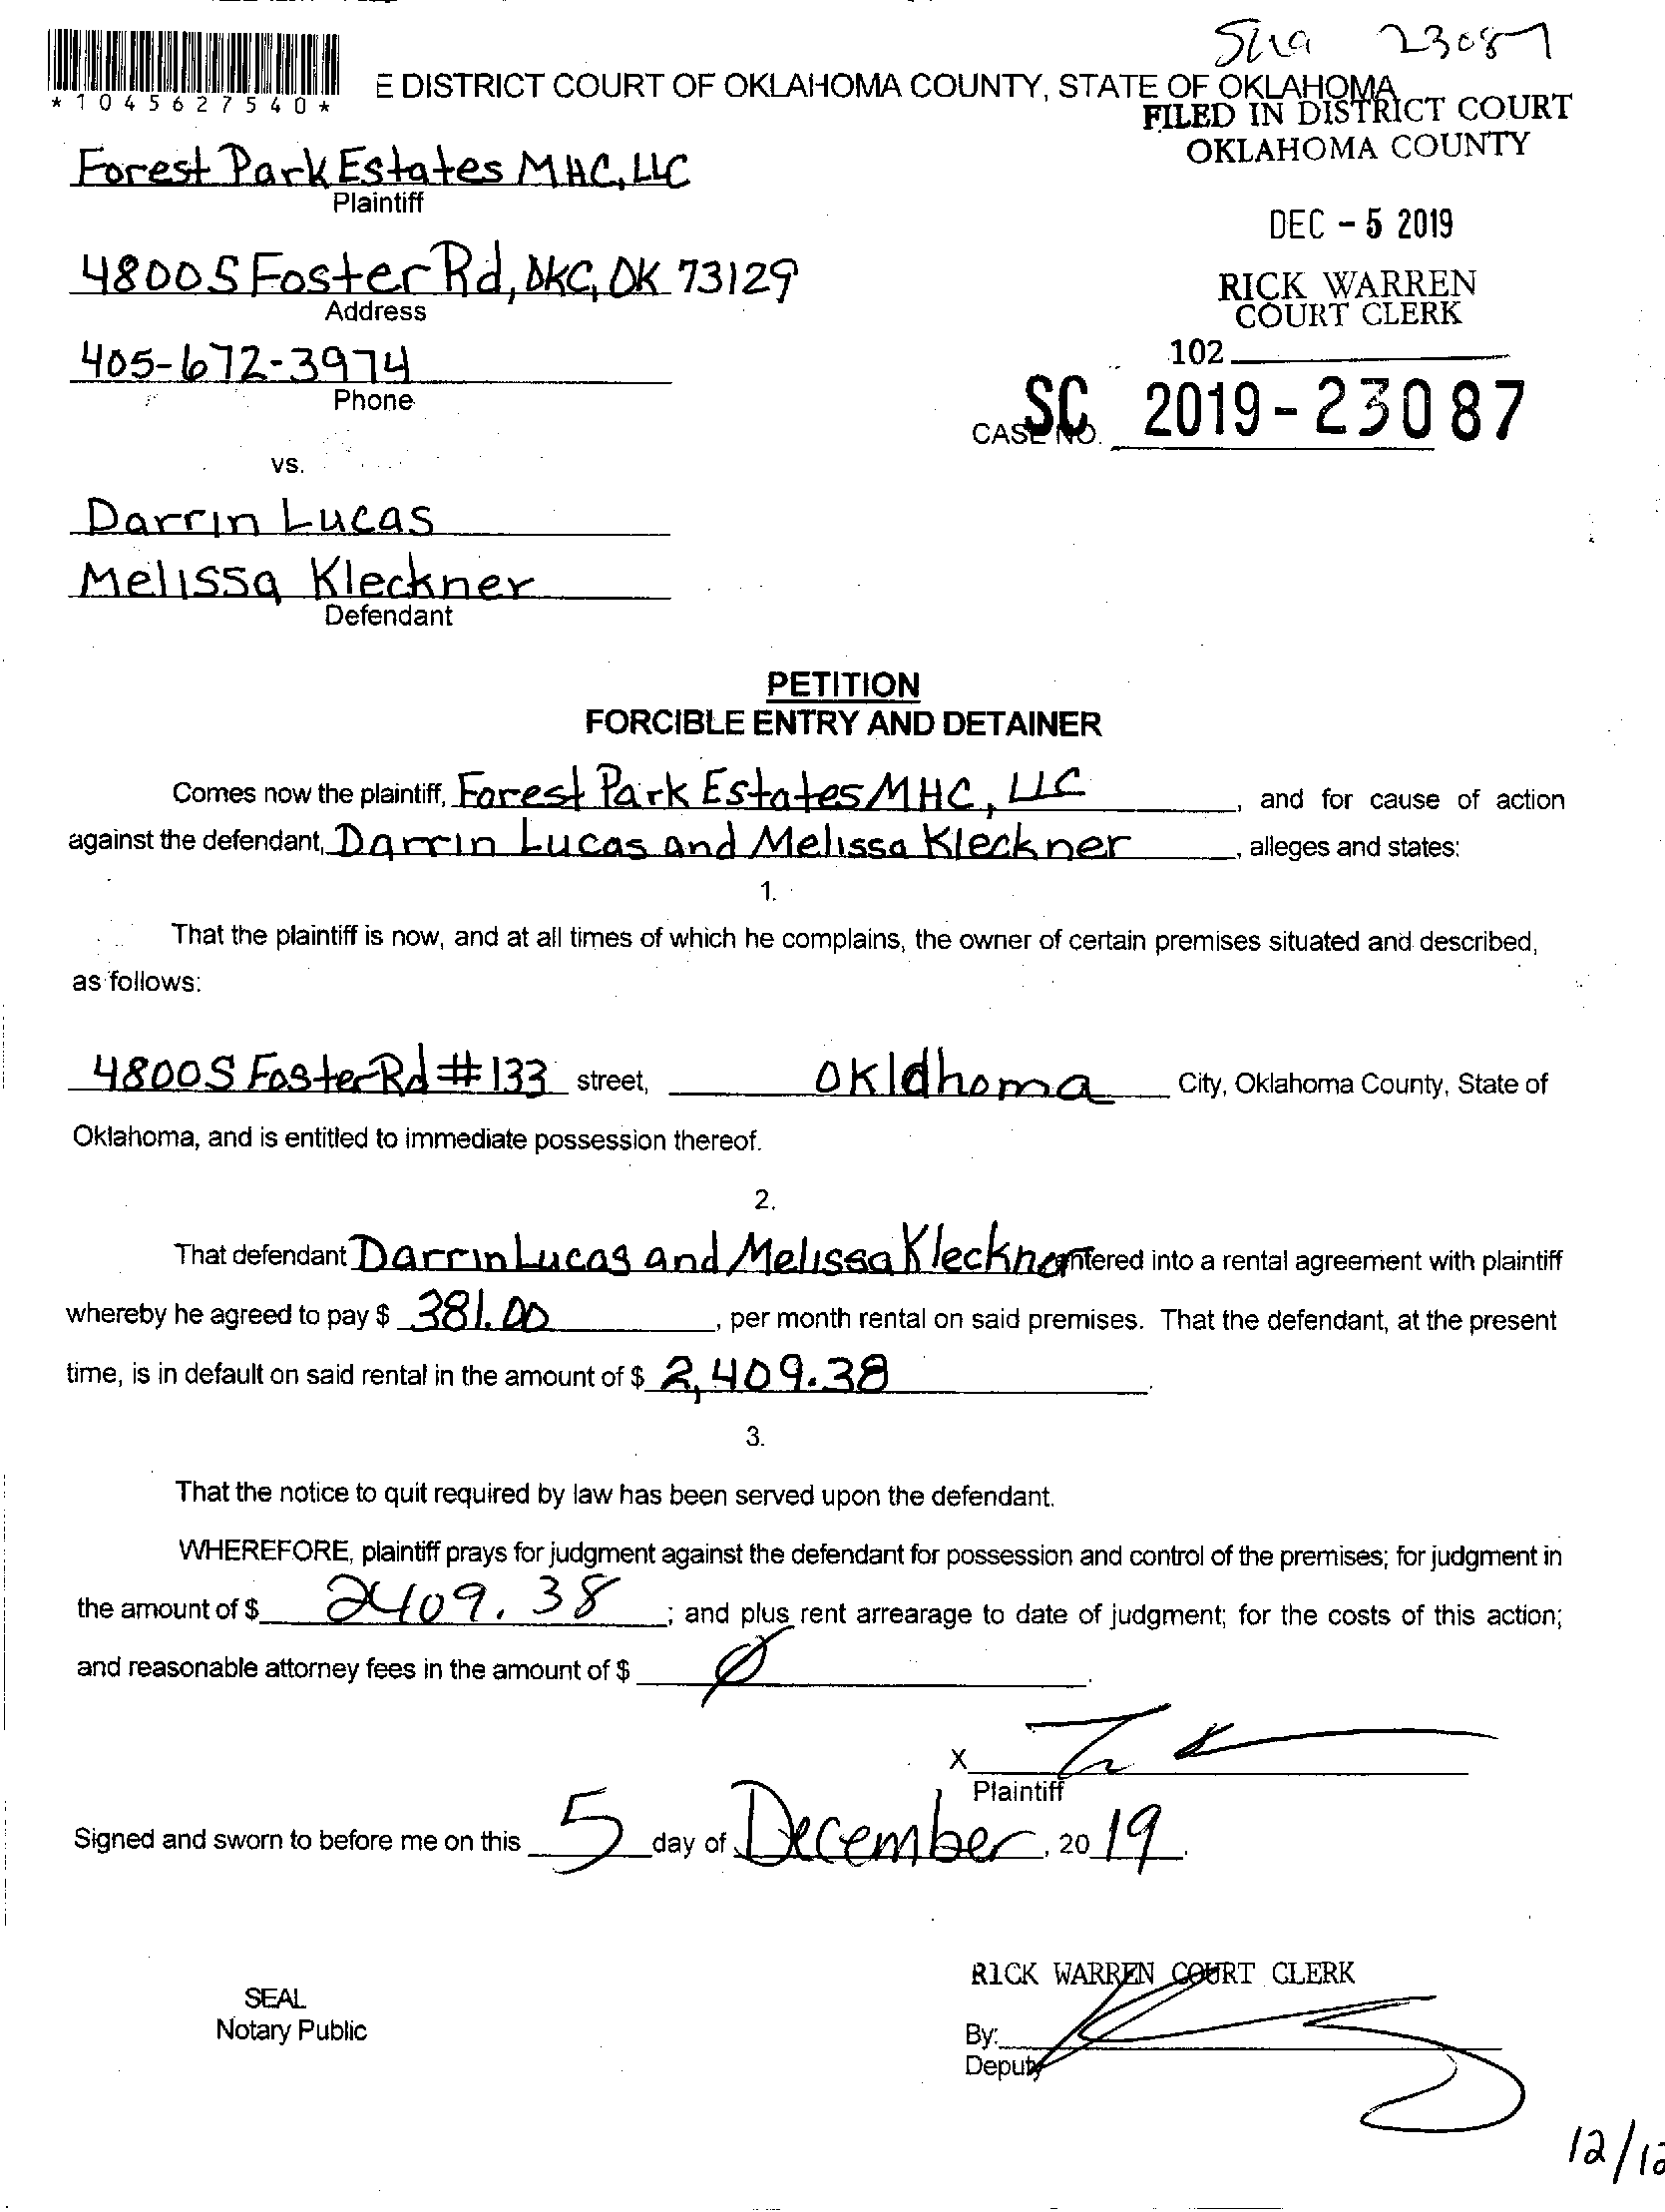 23087
*1045627540*
E DISTRICT COURT OF OKLAHOMA COUNTY, STATE OF OKLAHOMA
FILED IN DISTRICT COURT
OKLAHOMA COUNTY
Forest Park Estates MHC, LLC
Plaintiff
DEC - 5 2019
4800 S Foster Rd, OKC, OK 73129
Address
RICK WARREN
COURT CLERK
405-672-3974
Phone
102
CASE NO. SC 2019-23087
vs.
Darrin Lucas
Melissa Kleckner
Defendant
PETITION
FORCIBLE ENTRY AND DETAINER
Comes now the plaintiff, Forest Park Estates MHC, LLC, and for cause of action
against the defendant, Darrin Lucas and Melissa Kleckner, alleges and states:
1.
That the plaintiff is now, and at all times of which he complains, the owner of certain premises situated and described,
as follows:
4800 S Foster Rd #133 street, Oklahoma City, Oklahoma County, State of
Oklahoma, and is entitled to immediate possession thereof.
2.
That defendant Darrin Lucas and Melissa Kleckner entered into a rental agreement with plaintiff
whereby he agreed to pay $ 381.00, per month rental on said premises. That the defendant, at the present
time, is in default on said rental in the amount of $ 2,409.38.
3.
That the notice to quit required by law has been served upon the defendant.
WHEREFORE, plaintiff prays for judgment against the defendant for possession and control of the premises; for judgment in
the amount of $ 2409.38; and plus rent arrearage to date of judgment; for the costs of this action;
and reasonable attorney fees in the amount of $ Ø.
X
Plaintiff
Signed and sworn to before me on this 5 day of December, 2019.
RICK WARREN COURT CLERK
SEAL
Notary Public
By:
Deputy
12/12